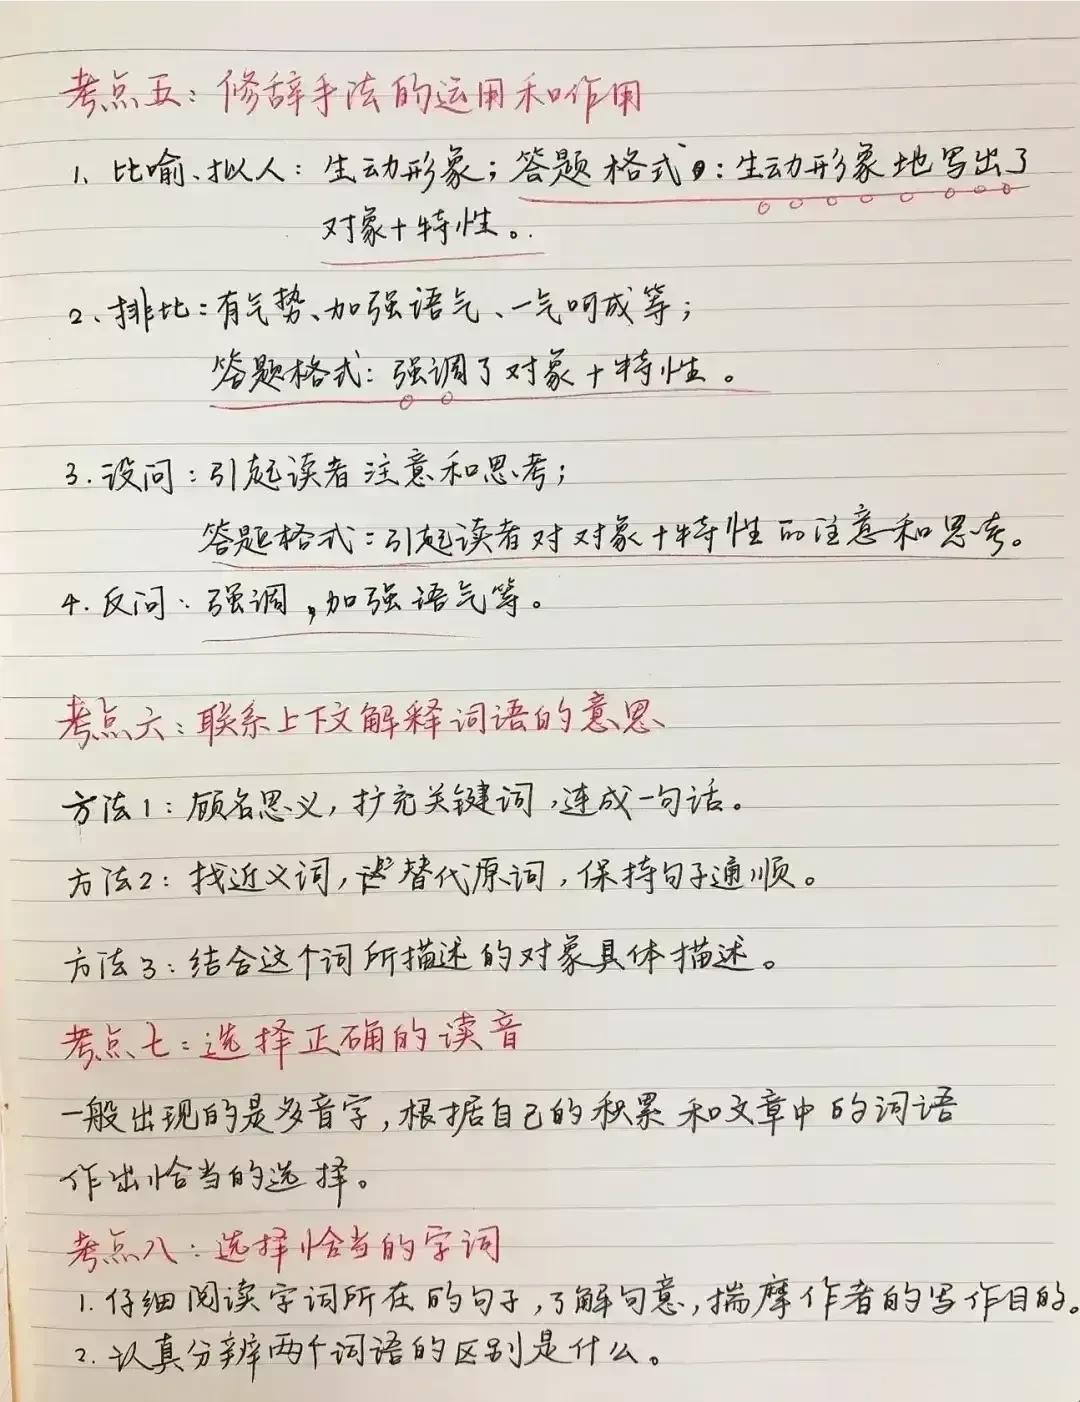 考点五：修辞手法的运用和作用
1、比喻、拟人：生动形象；答题格式：生动形象地写出了
对象+特性。
2、排比：有气势、加强语气、一气呵成等；
答题格式：强调了对象+特性。
3.设问：引起读者注意和思考；
答题格式：引起读者对对象+特性的注意和思考。
4.反问：强调，加强语气等。
考点六：联系上下文解释词语的意思
方法1：顾名思义，扩充关键词，连成一句话。
方法2：找近义词，替代原词，保持句子通顺。
方法3：结合这个词所描述的对象具体描述。
考点七：选择正确的读音
一般出现的是多音字，根据自己的积累和文章中的词语
作出恰当的选择。
考点八：选择恰当的字词
1.仔细阅读字词所在的句子，了解句意，揣摩作者的写作目的。
2.认真分辨两个词语的区别是什么。